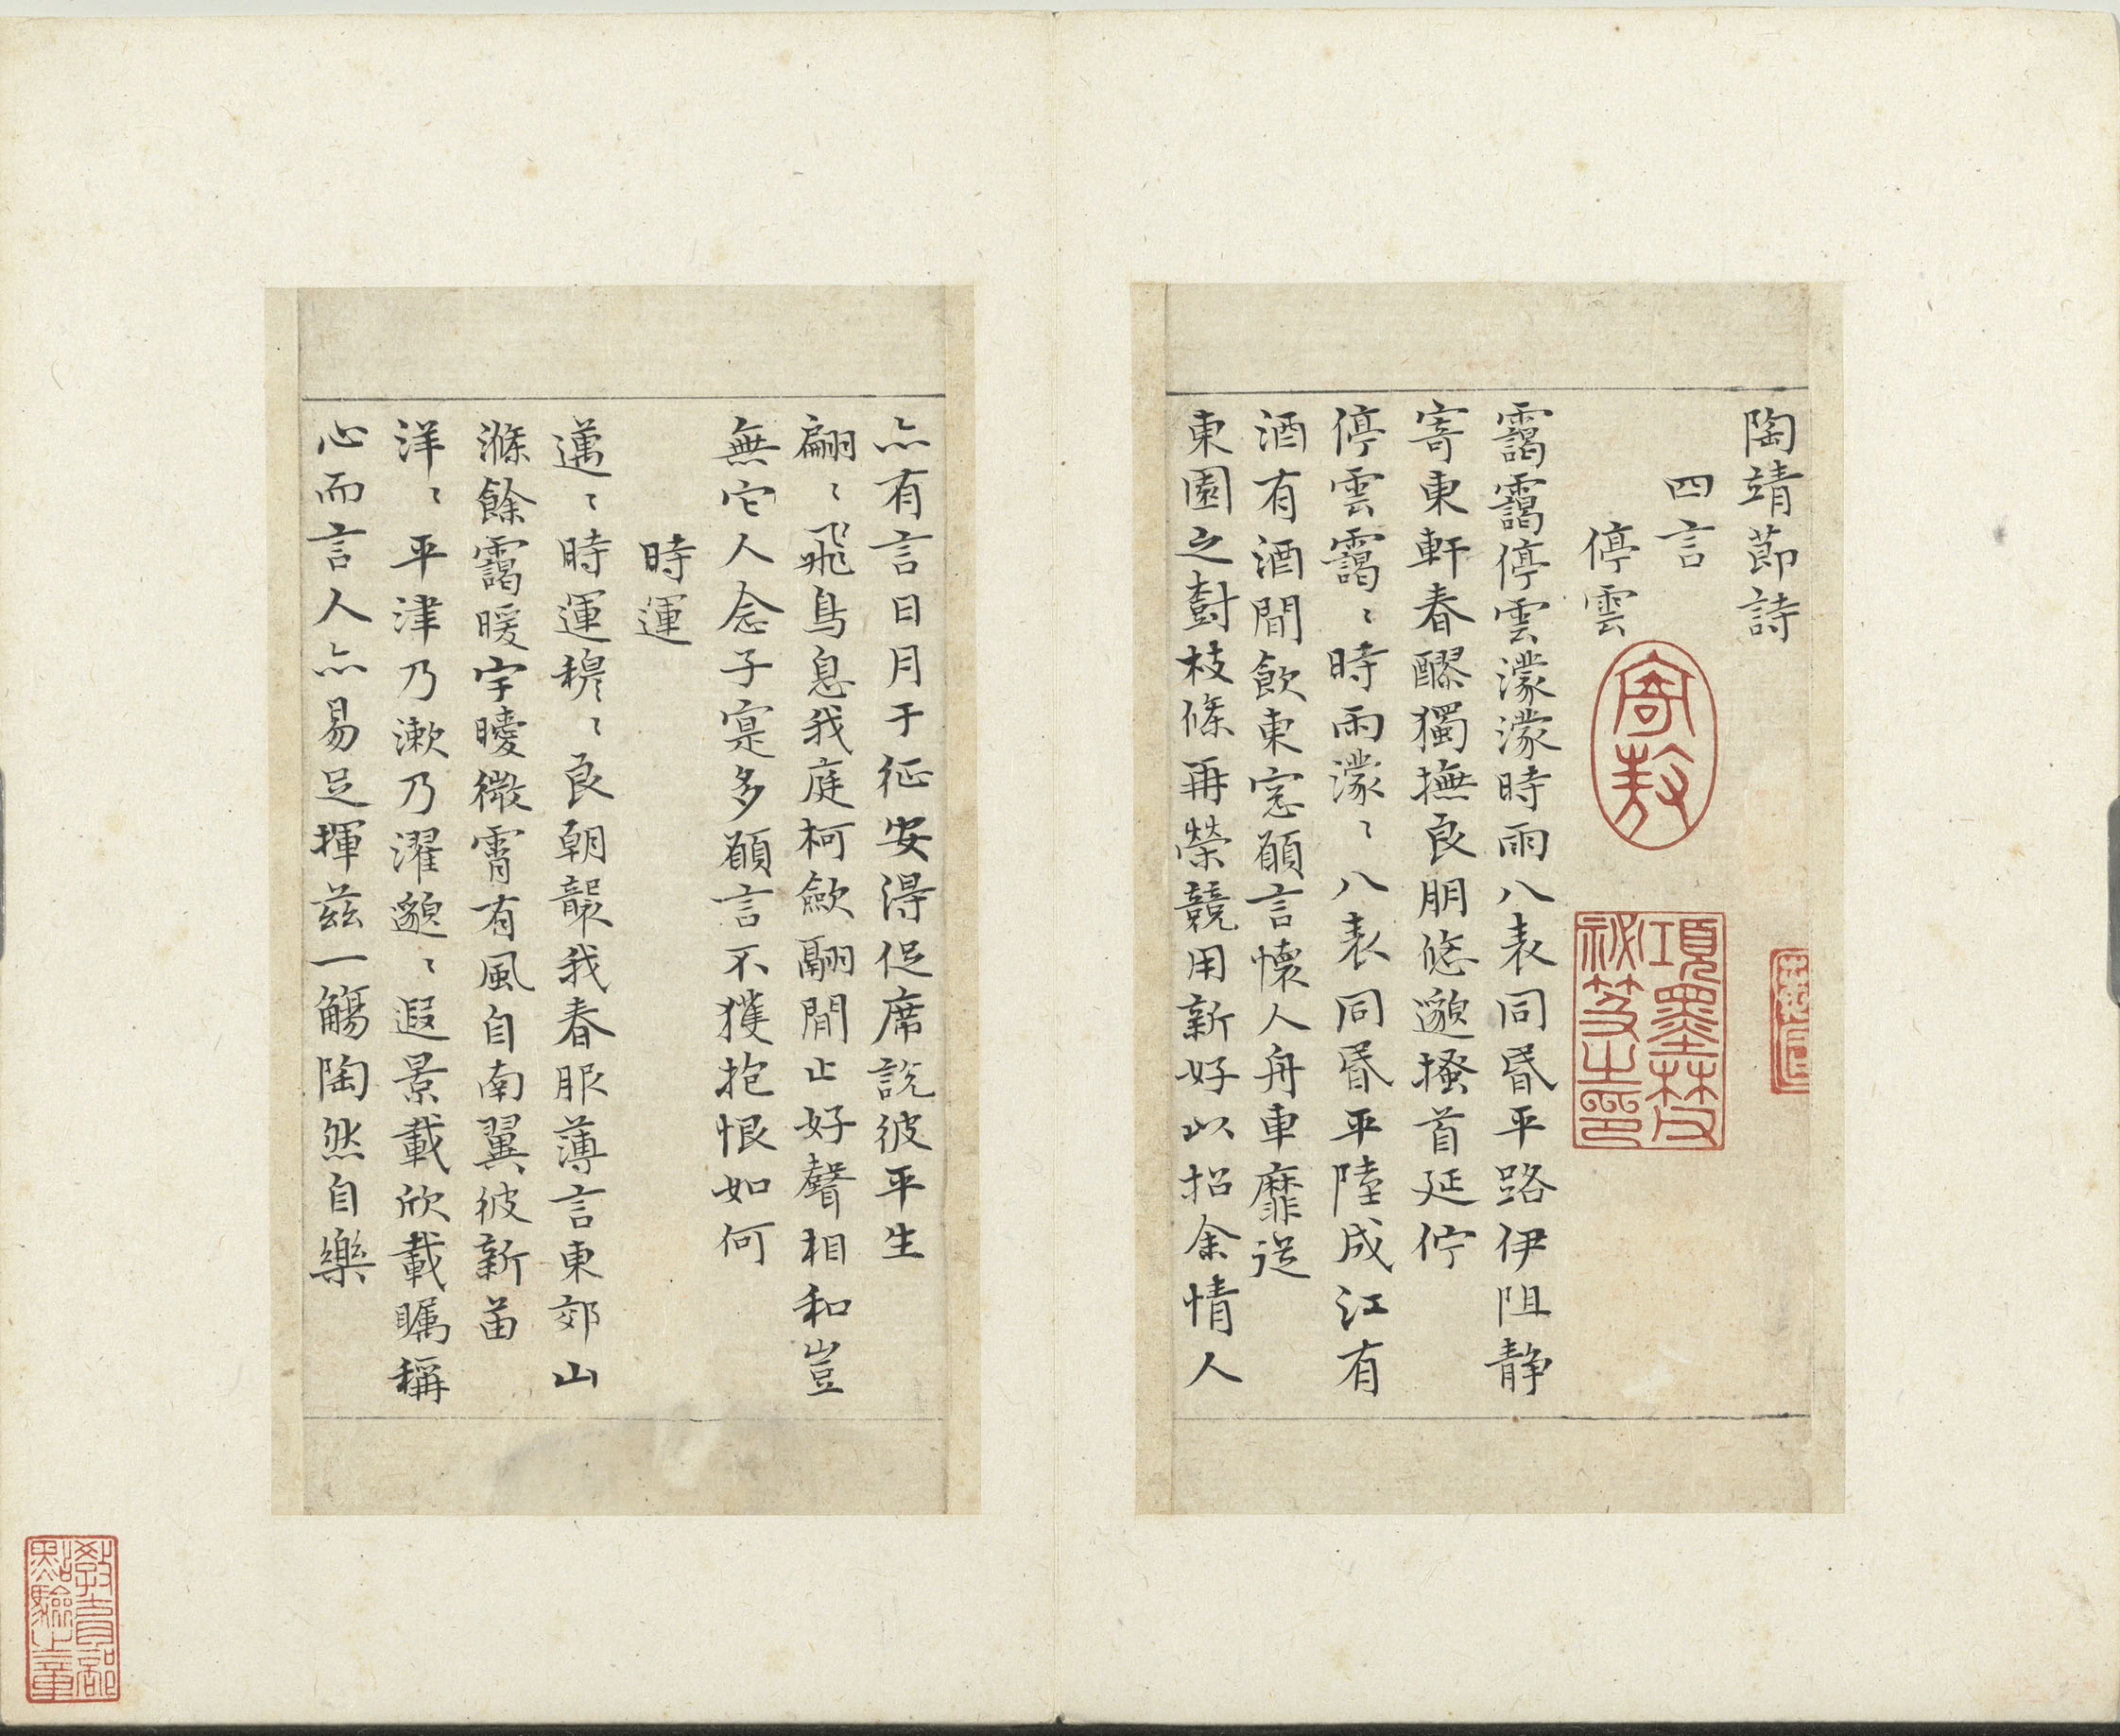 陶靖節詩
四言
停雲
靄靄停雲濛濛時雨八表同昏平路伊阻静
寄東軒春醪獨撫良朋悠邈搔首延佇
停雲靄〻時雨濛〻八表同昏平陸成江有
酒有酒閒飲東窓願言懷人舟車靡從
東園之樹枝條再榮競用新好以招余情人
亦有言日月于征安得促席說彼平生
翩〻飛鳥息我庭柯斂翮閒止好聲相和豈
無它人念子寔多願言不獲抱恨如何
時運
邁〻時運穆〻良朝襲我春服薄言東郊山
滌餘靄曖宇曖微霄有風自南翼彼新苗
洋〻平津乃漱乃濯邈〻遐景載欣載矚稱
心而言人亦易足揮茲一觴陶然自樂
寄敖
項墨林父秘笈之印
教育部點驗之章